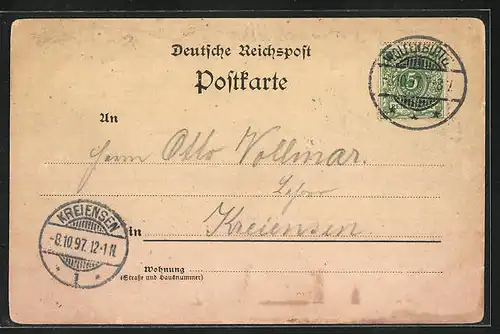 Deutsche Reichspost
Postkarte
5
An
Herrn Otto Vollmar.
KREIENSEN
-8.10.97. 12-1 N.
* 1 *
in Kreiensen
Wohnung
(Straße und Hausnummer)